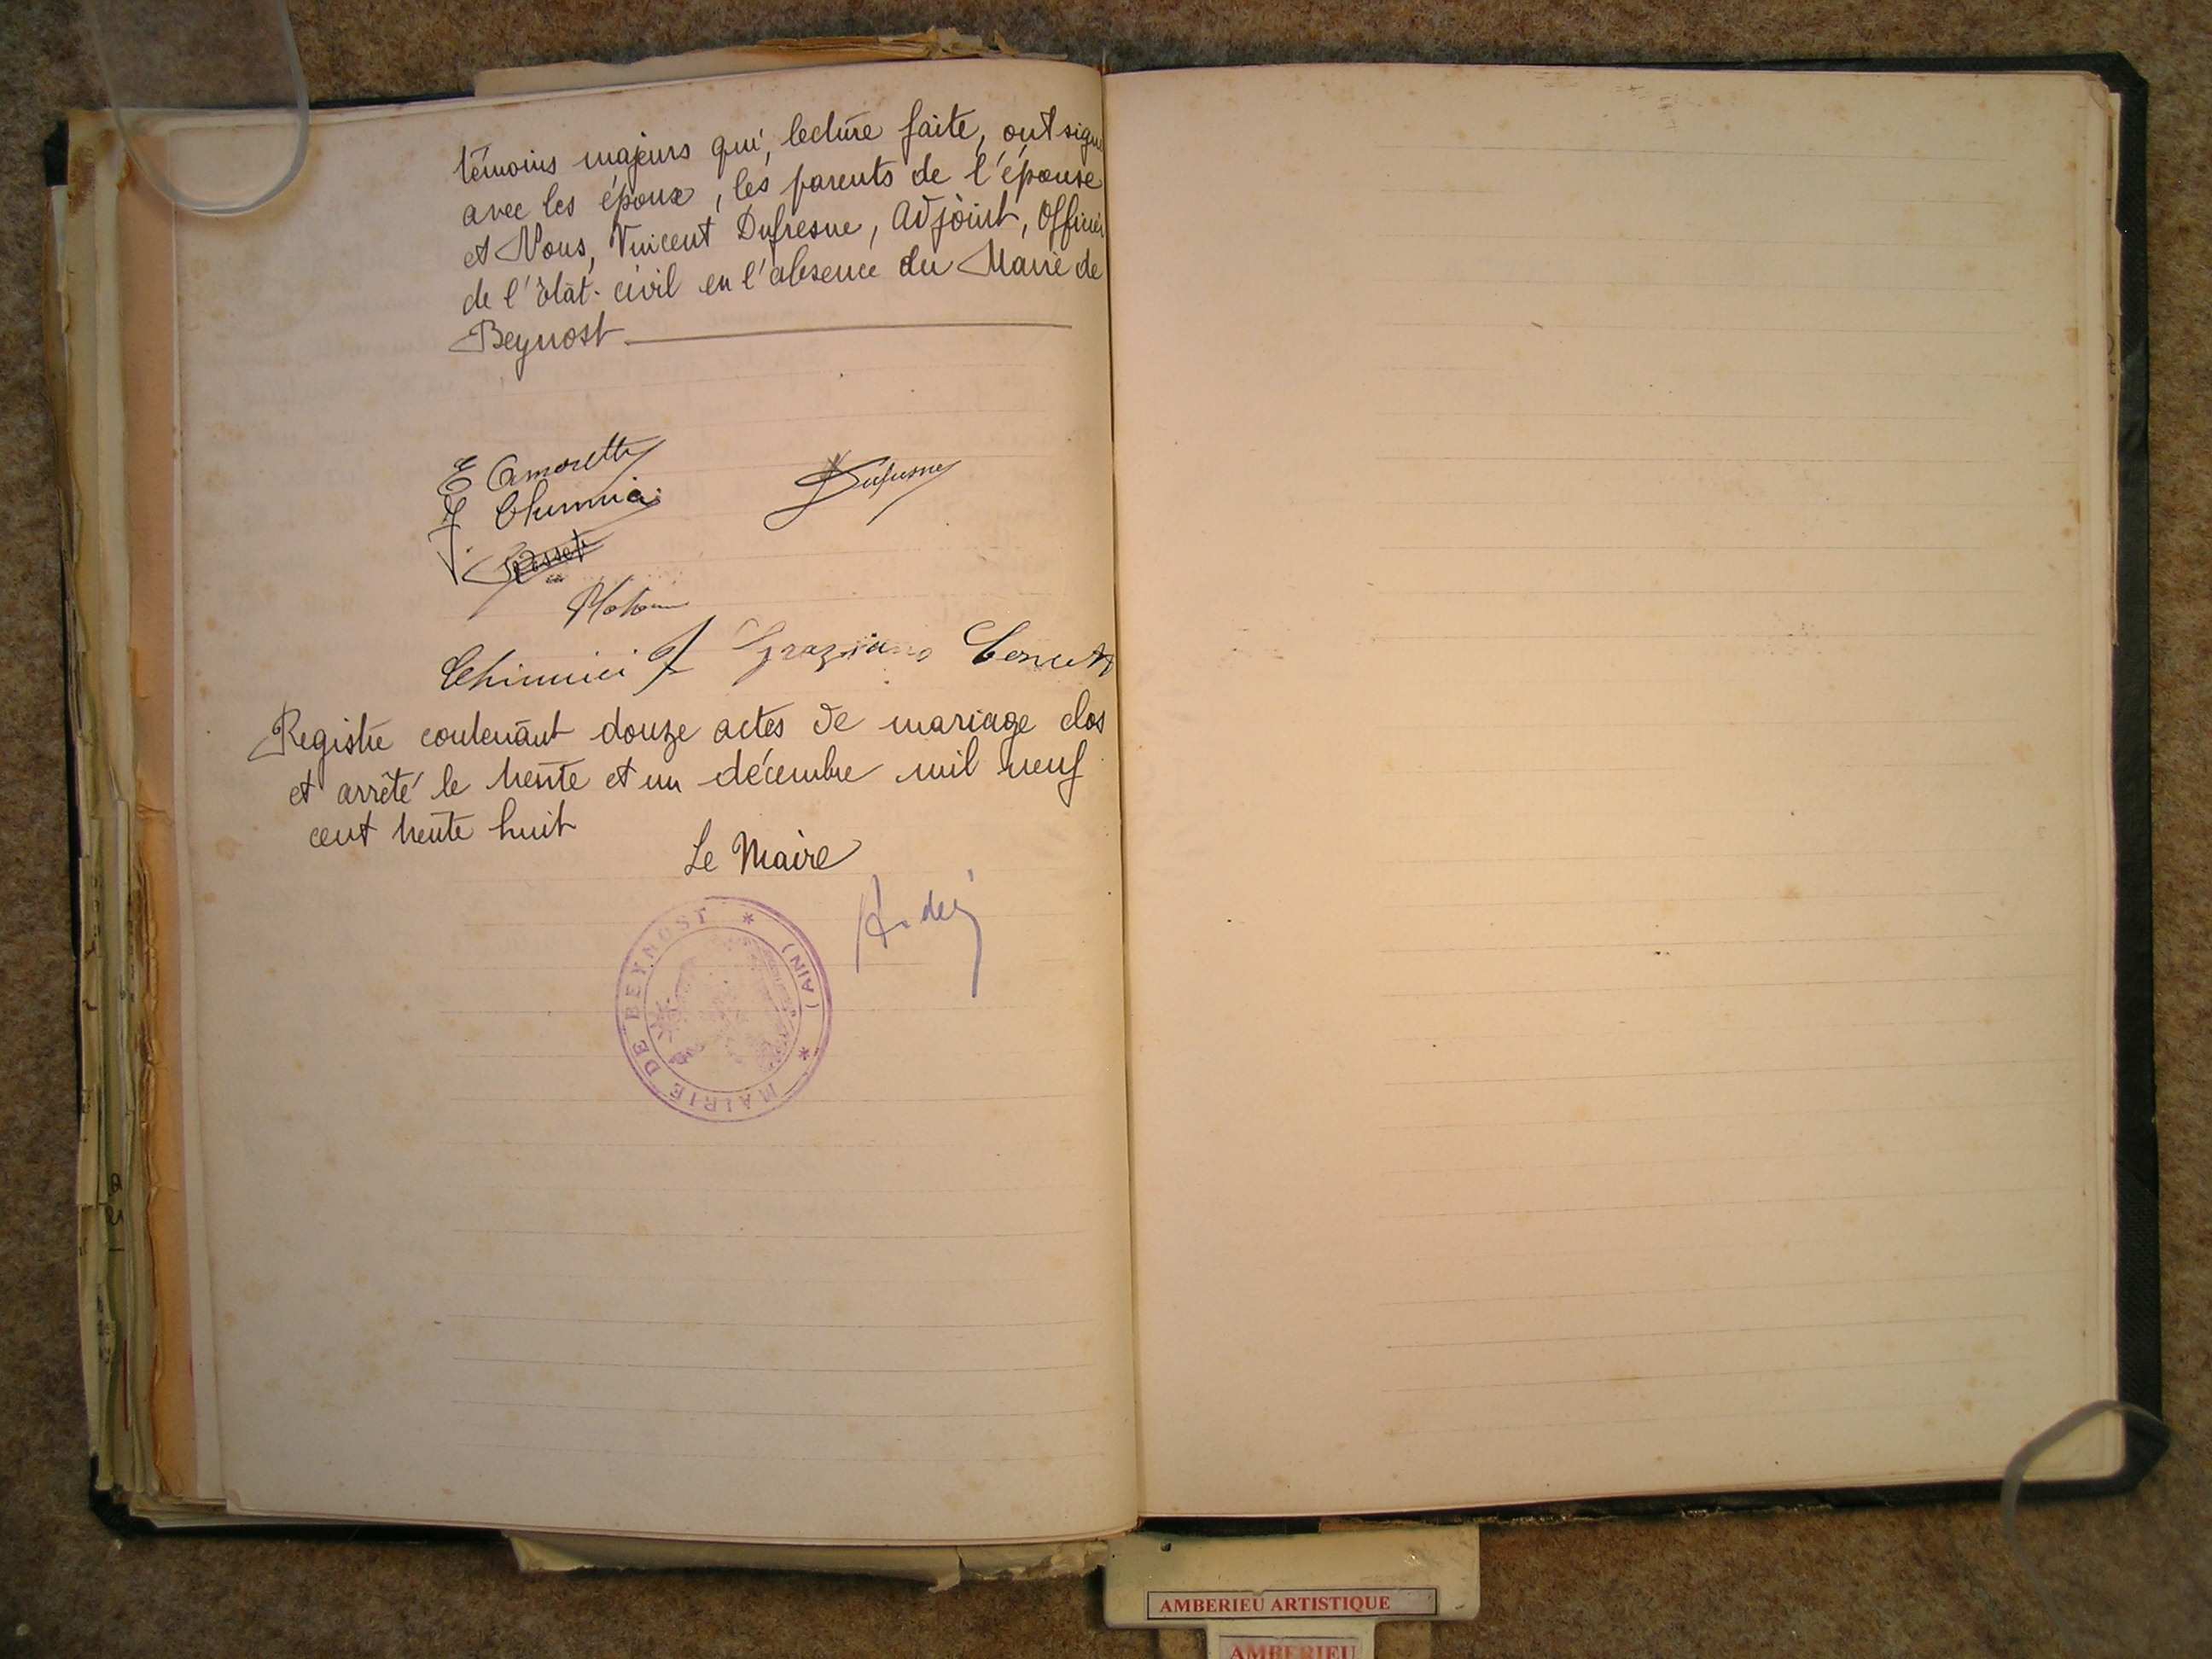 témoins majeurs qui, lecture faite, ont signé
avec les époux, les parents de l'épouse
et Nous, Vincent Dufresne, Adjoint, Officier
de l'état-civil en l'absence du Maire de
Beynost
E Amoretti
Dufresne
Chimici
Graziano
Registre contenant douze actes de mariage clos
et arrêté le trente et un décembre mil neuf
cent trente huit
Le Maire
MAIRIE DE BEYNOST * (AIN) *
AMBERIEU ARTISTIQUE
AMBERIEU